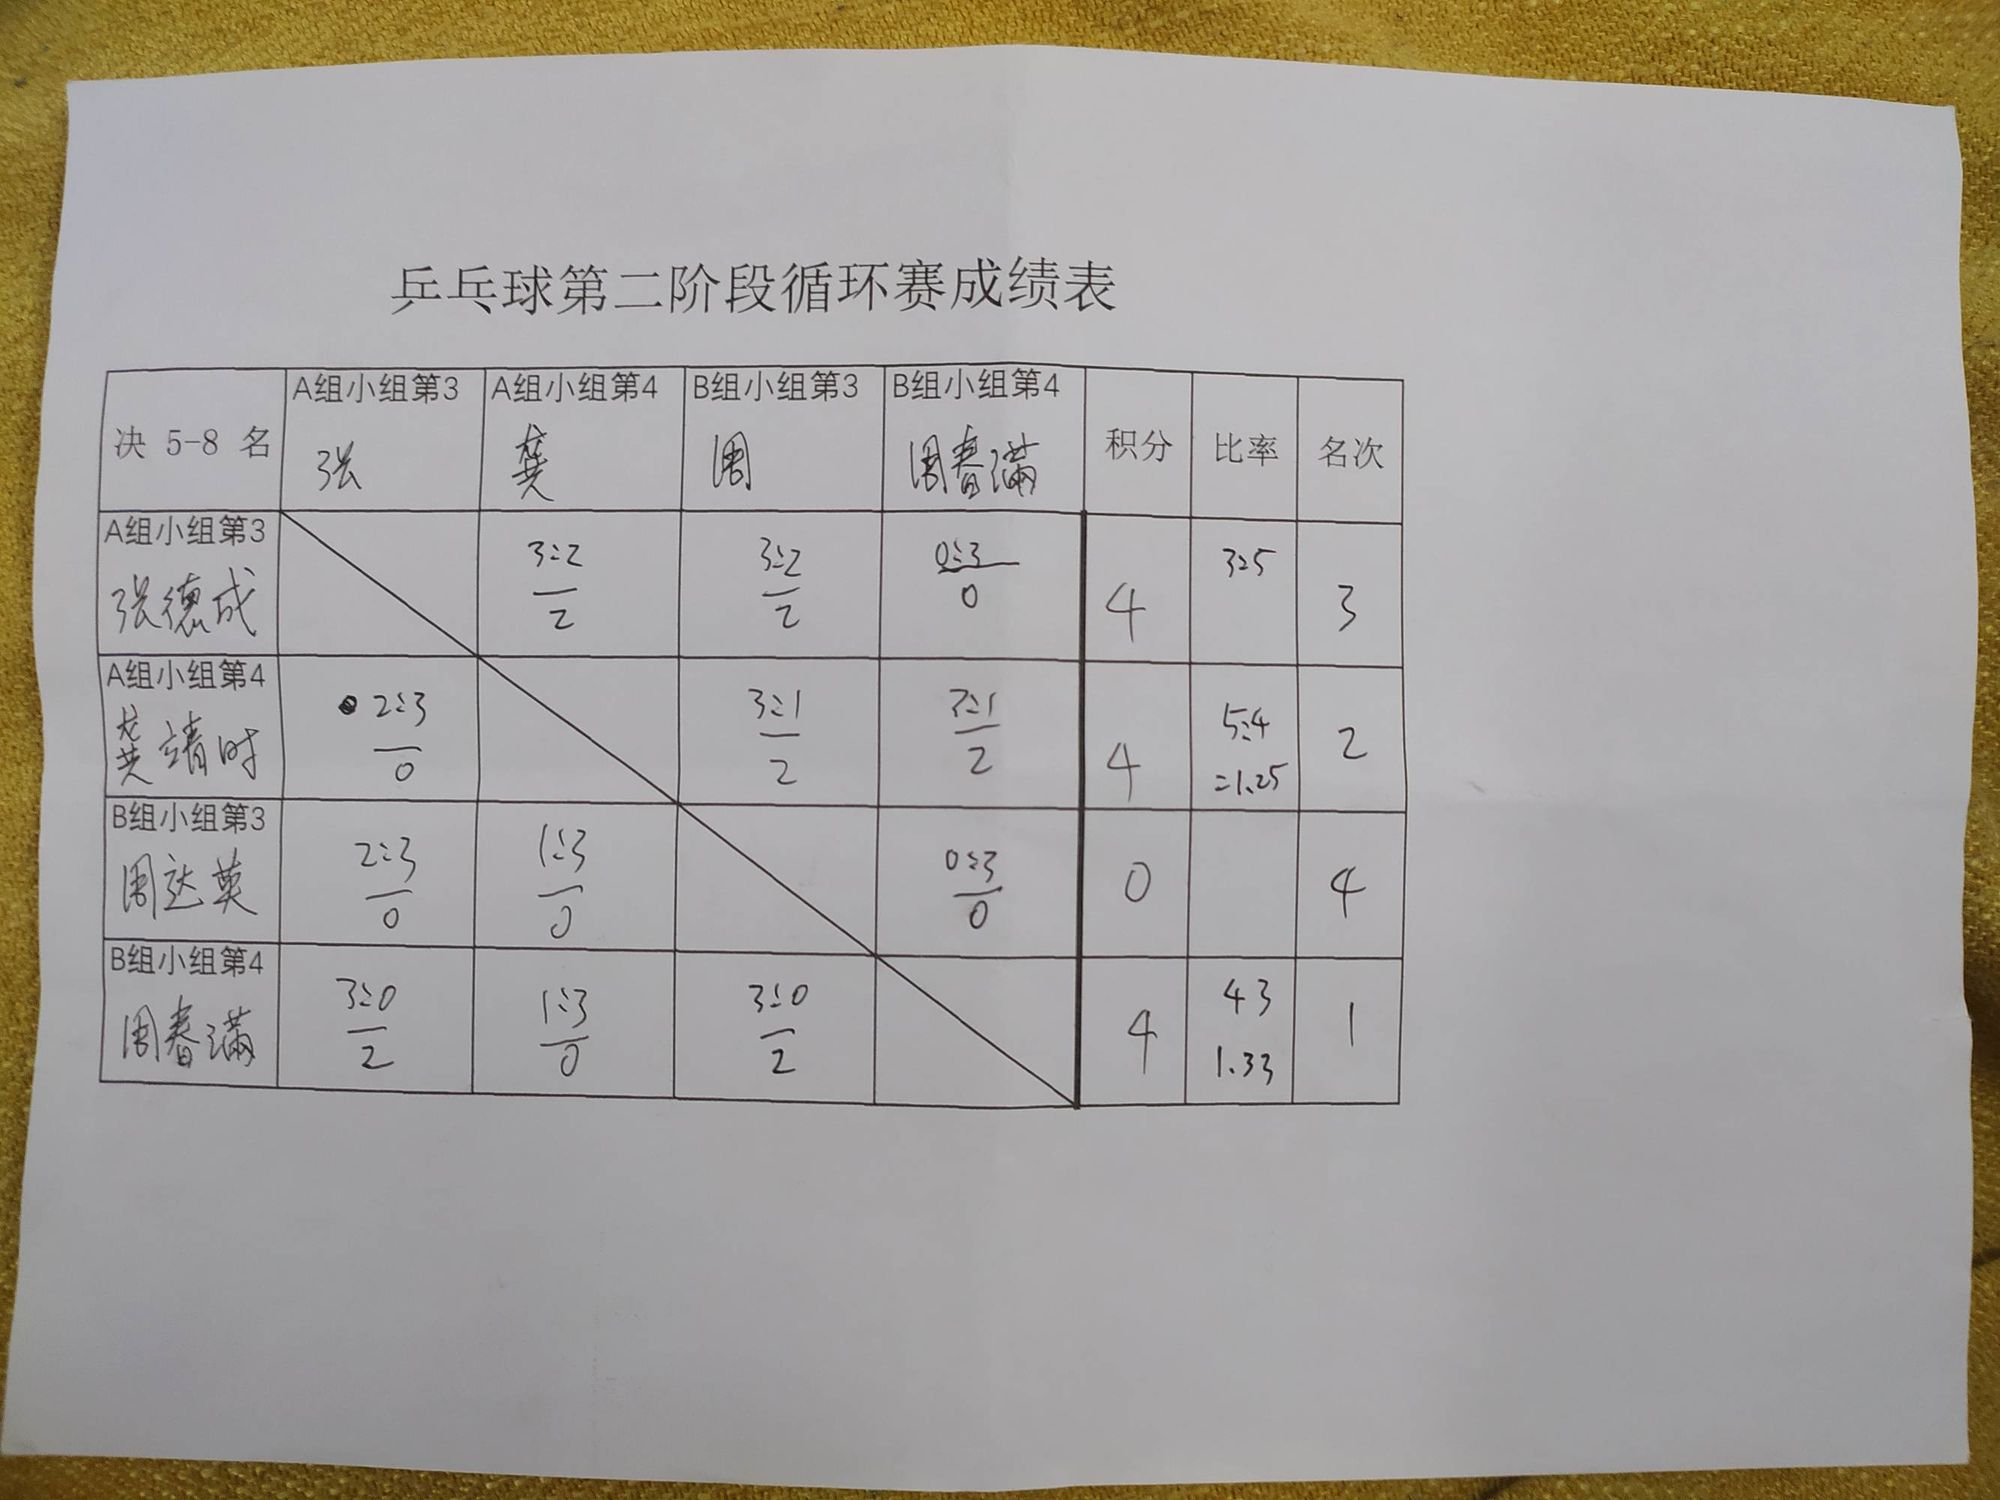 乒乓球第二阶段循环赛成绩表
决 5-8 名
A组小组第3
张
A组小组第4
龚
B组小组第3
周
B组小组第4
周春满
积分
比率
名次
A组小组第3
张德成
3:2
2
3:2
2
0:3
0
4
3:5
3
A组小组第4
龚靖时
2:3
0
3:1
2
3:1
2
4
5:4
=1.25
2
B组小组第3
周达英
2:3
0
1:3
0
0:3
0
0
4
B组小组第4
周春满
3:0
2
1:3
0
3:0
2
4
4 3
1.33
1